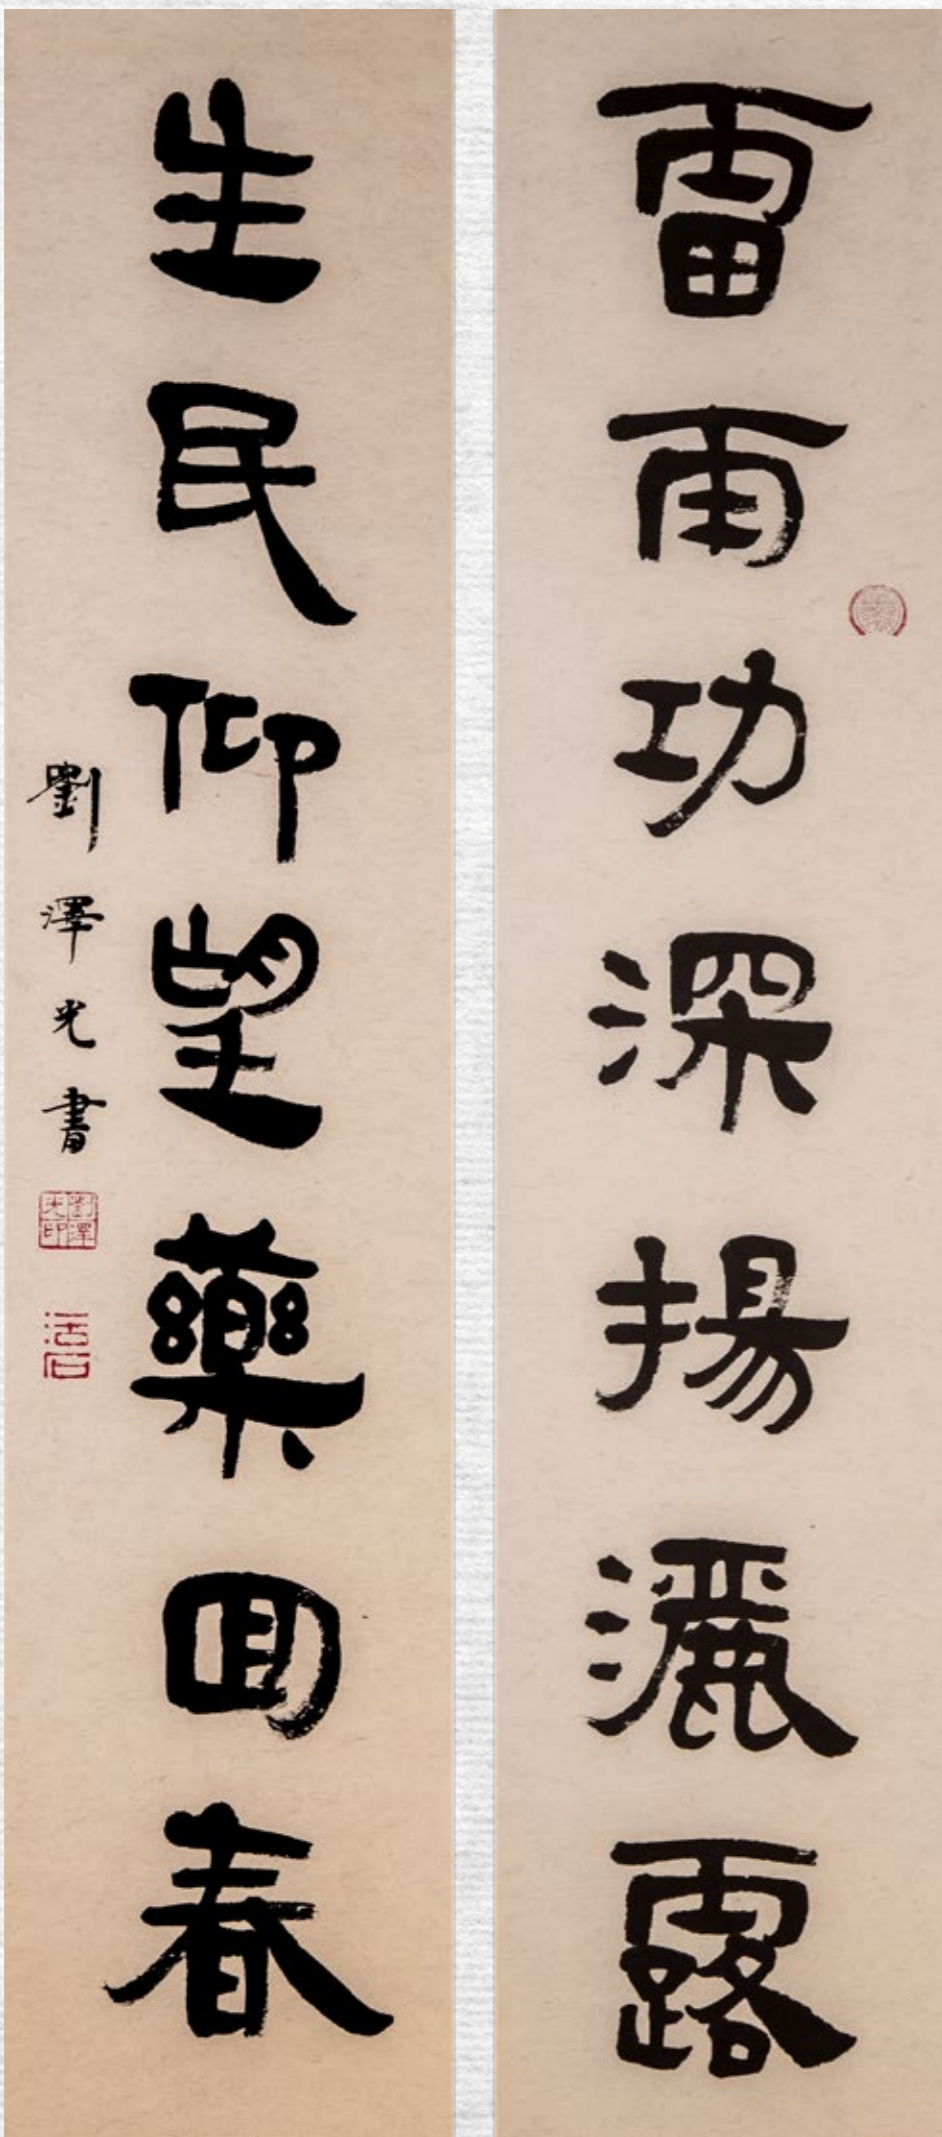 雷雨功深揚灑露
生民仰望藥回春
劉澤光書
劉澤光印
活石